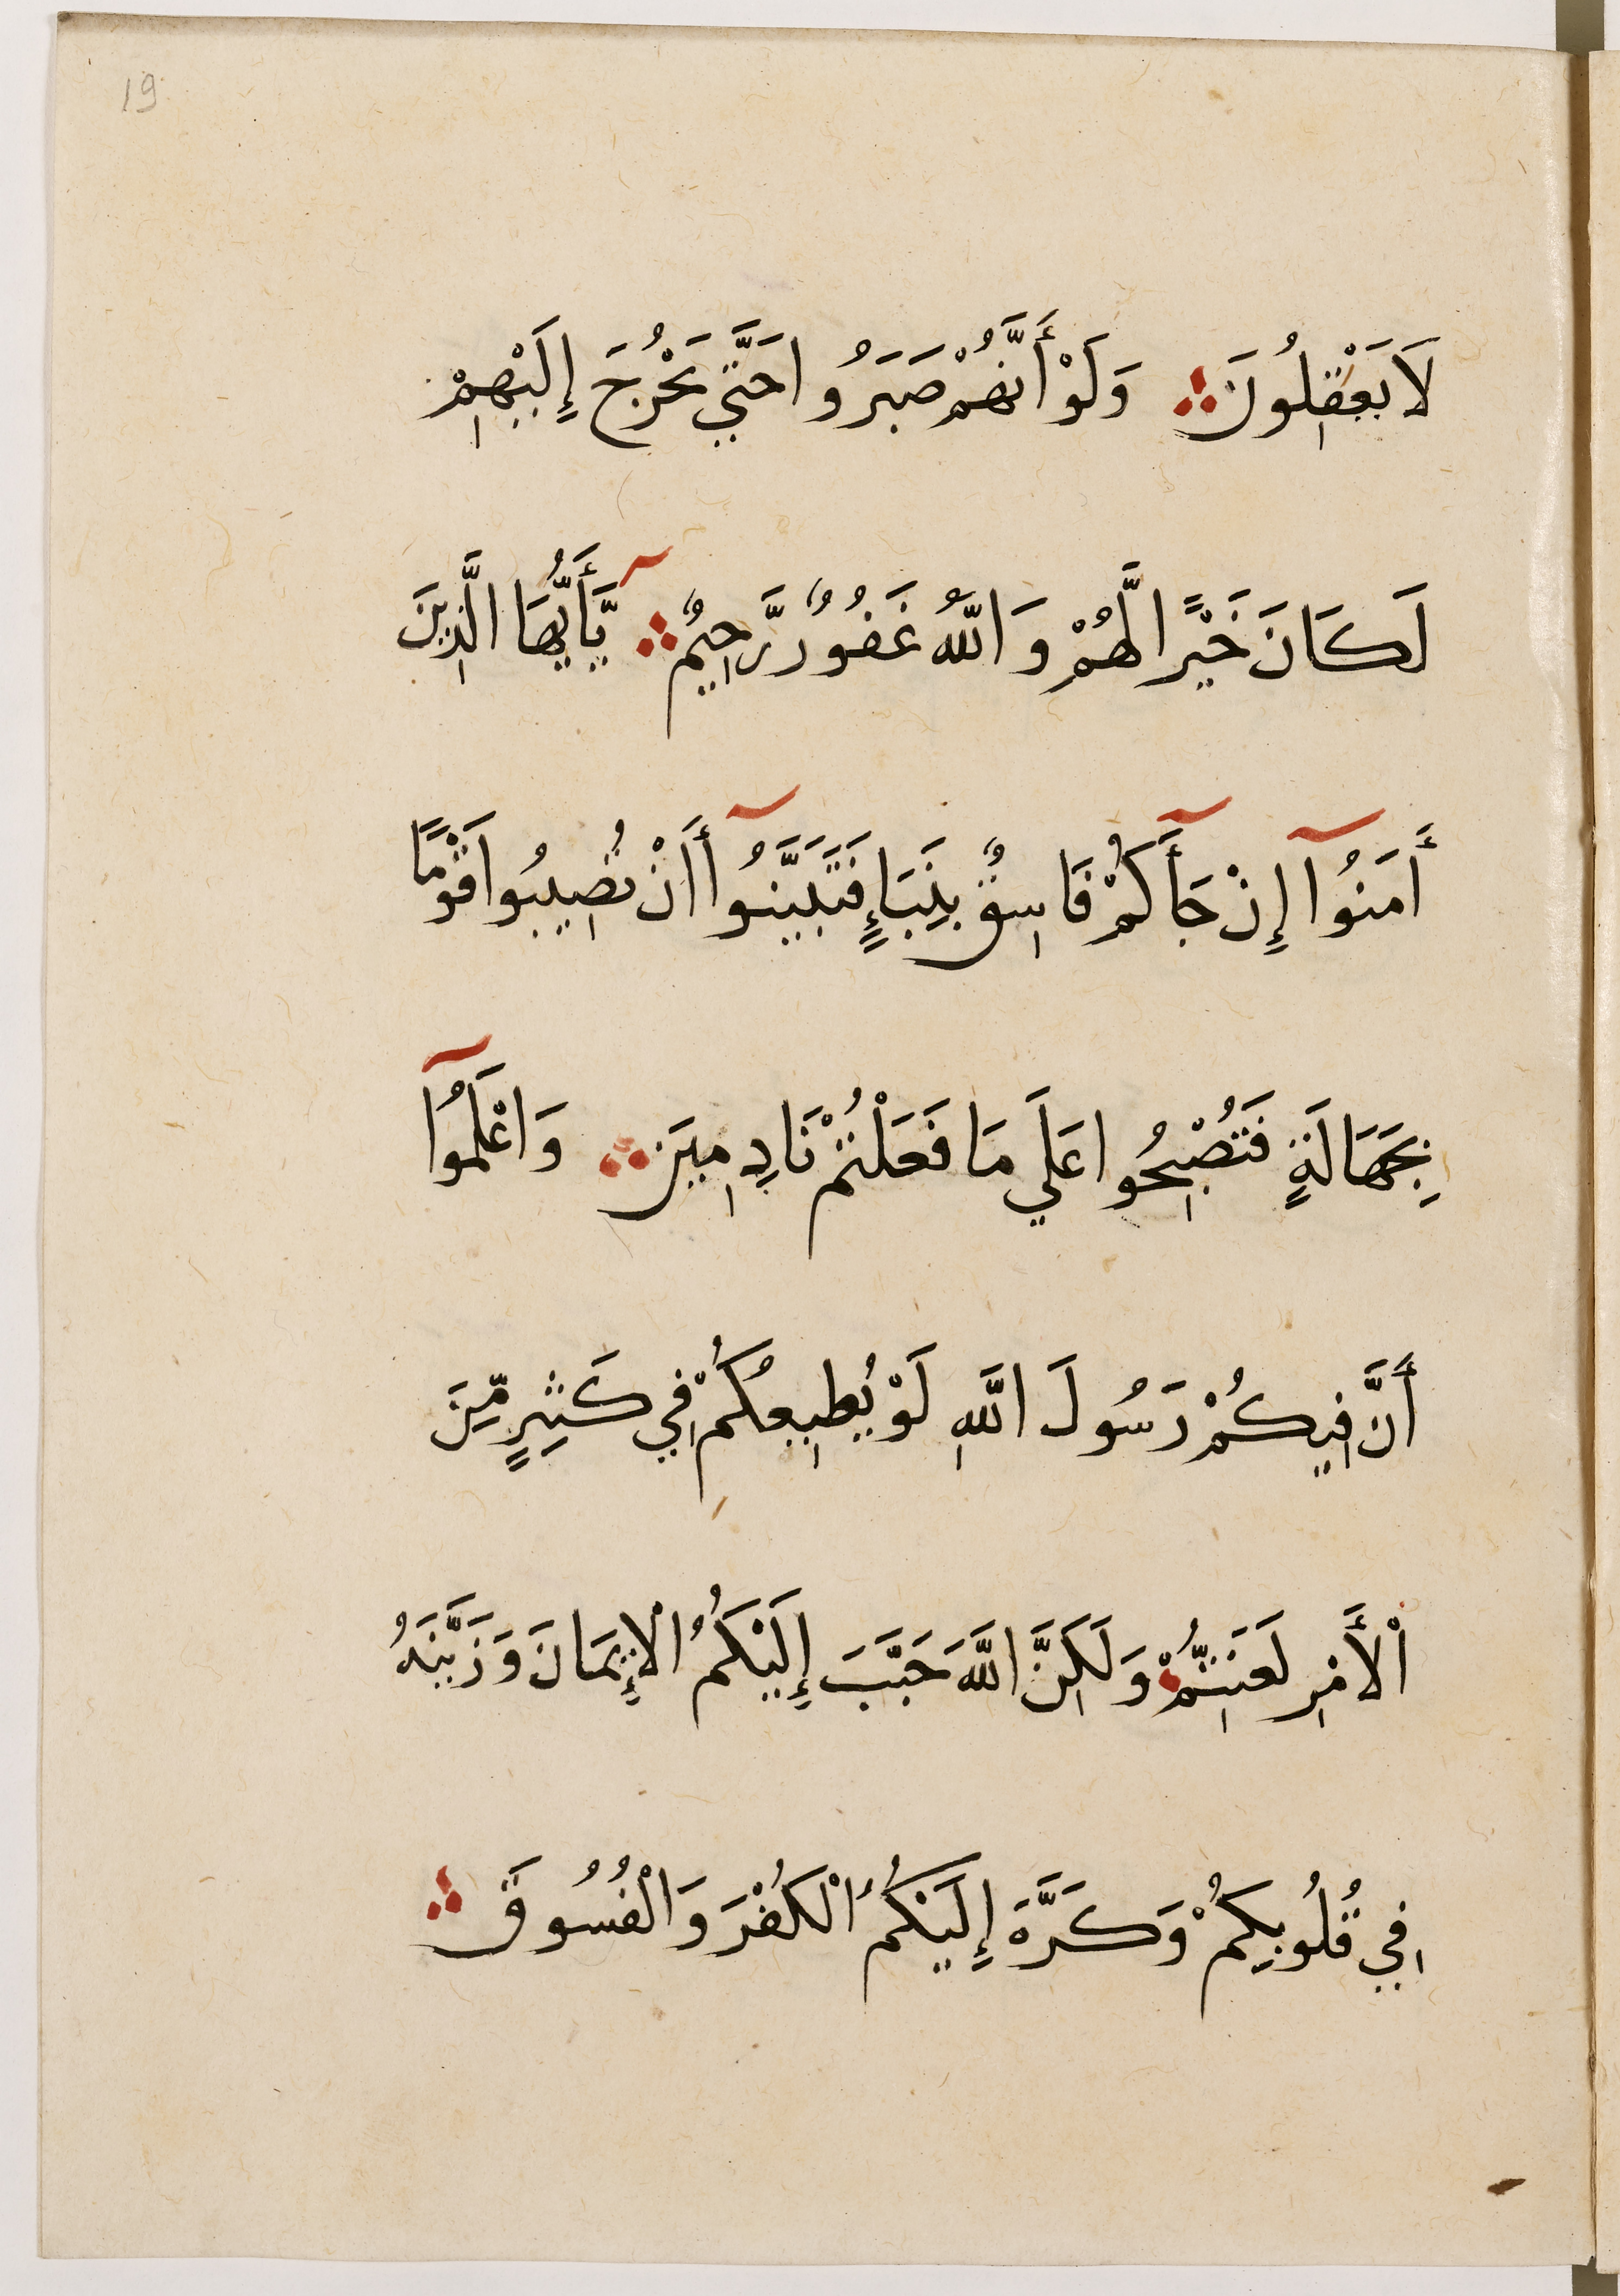 19
لَا يَعْقِلُونَ وَلَوْ أَنَّهُمْ صَبَرُوا حَتَّي يَخْرُجَ إِلَيْهِمْ
لَكَانَ خَيْرًا لَّهُمْ وَاللَّهُ غَفُورٌ رَّحِيمٌ يَّأَيُّهَا الَّذِينَ
أَمَنُوآ إِنْ جَآَكُمْ فَاسِقٌ بِنَبَإٍ فَتَبَيَّنُوآ أَنْ تُصِيبُوا قَوْمًا
بِجَهَالَةٍ فَتُصْبِحُوا عَلَي مَا فَعَلْتُمْ نَادِمِينَ وَاعْلَمُوآ
أَنَّ فِيكُمْ رَسُولَ اللَّهِ لَوْ يُطِيعُكُمْ فِي كَثِيرٍ مِّنَ
اْلأَمْرِ لَعَنِتُّمْ وَلَكِنَّ اللَّهَ حَبَّبَ إِلَيْكُمُ اْلإِيمَانَ وَزَيَّنَهُ
فِي قُلُوبِكُمْ وَكَرَّهَ إِلَيْكُمُ اْلكُفْرَ وَاْلفُسُوقَ